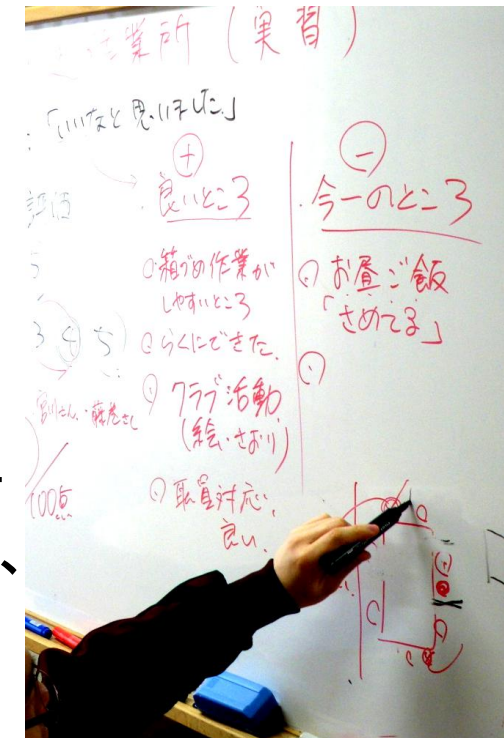 作業所（実習）
「いいなと思いました。」
評価
5
3 ④ 5
宮川さん・藤巻さん
/100点
⊕
良いところ
箱づめ作業が
しやすいところ
らくにできた。
クラブ活動
（絵・さおり）
職員対応、
良い。
⊖
今一のところ
お昼ご飯
「さめてる」